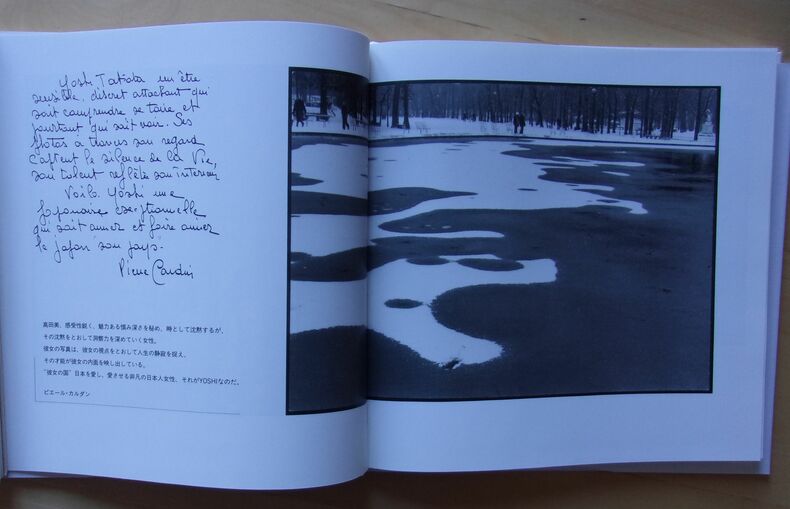 Yoshi Takata un être
sensible, discret attachant qui
sait comprendre se taire et
pourtant qui sait voir. Ses
photos a travers son regard
captent le silence de la Vie,
son talent reflète son interieur
Voila Yoshi une
Japonaise exceptionnelle
qui sait aimer et faire aimer
le Japon "son pays".
Pierre Cardin
高田美、感受性鋭く、魅力ある慎み深さを秘め、時として沈黙するが、
その沈黙をとおして洞察力を深めていく女性。
彼女の写真は、彼女の視点をとおして人生の静寂を捉え、
その才能が彼女の内面を映し出している。
“彼女の国”日本を愛し、愛させる非凡の日本人女性、それがYOSHIなのだ。
ピエール・カルダン